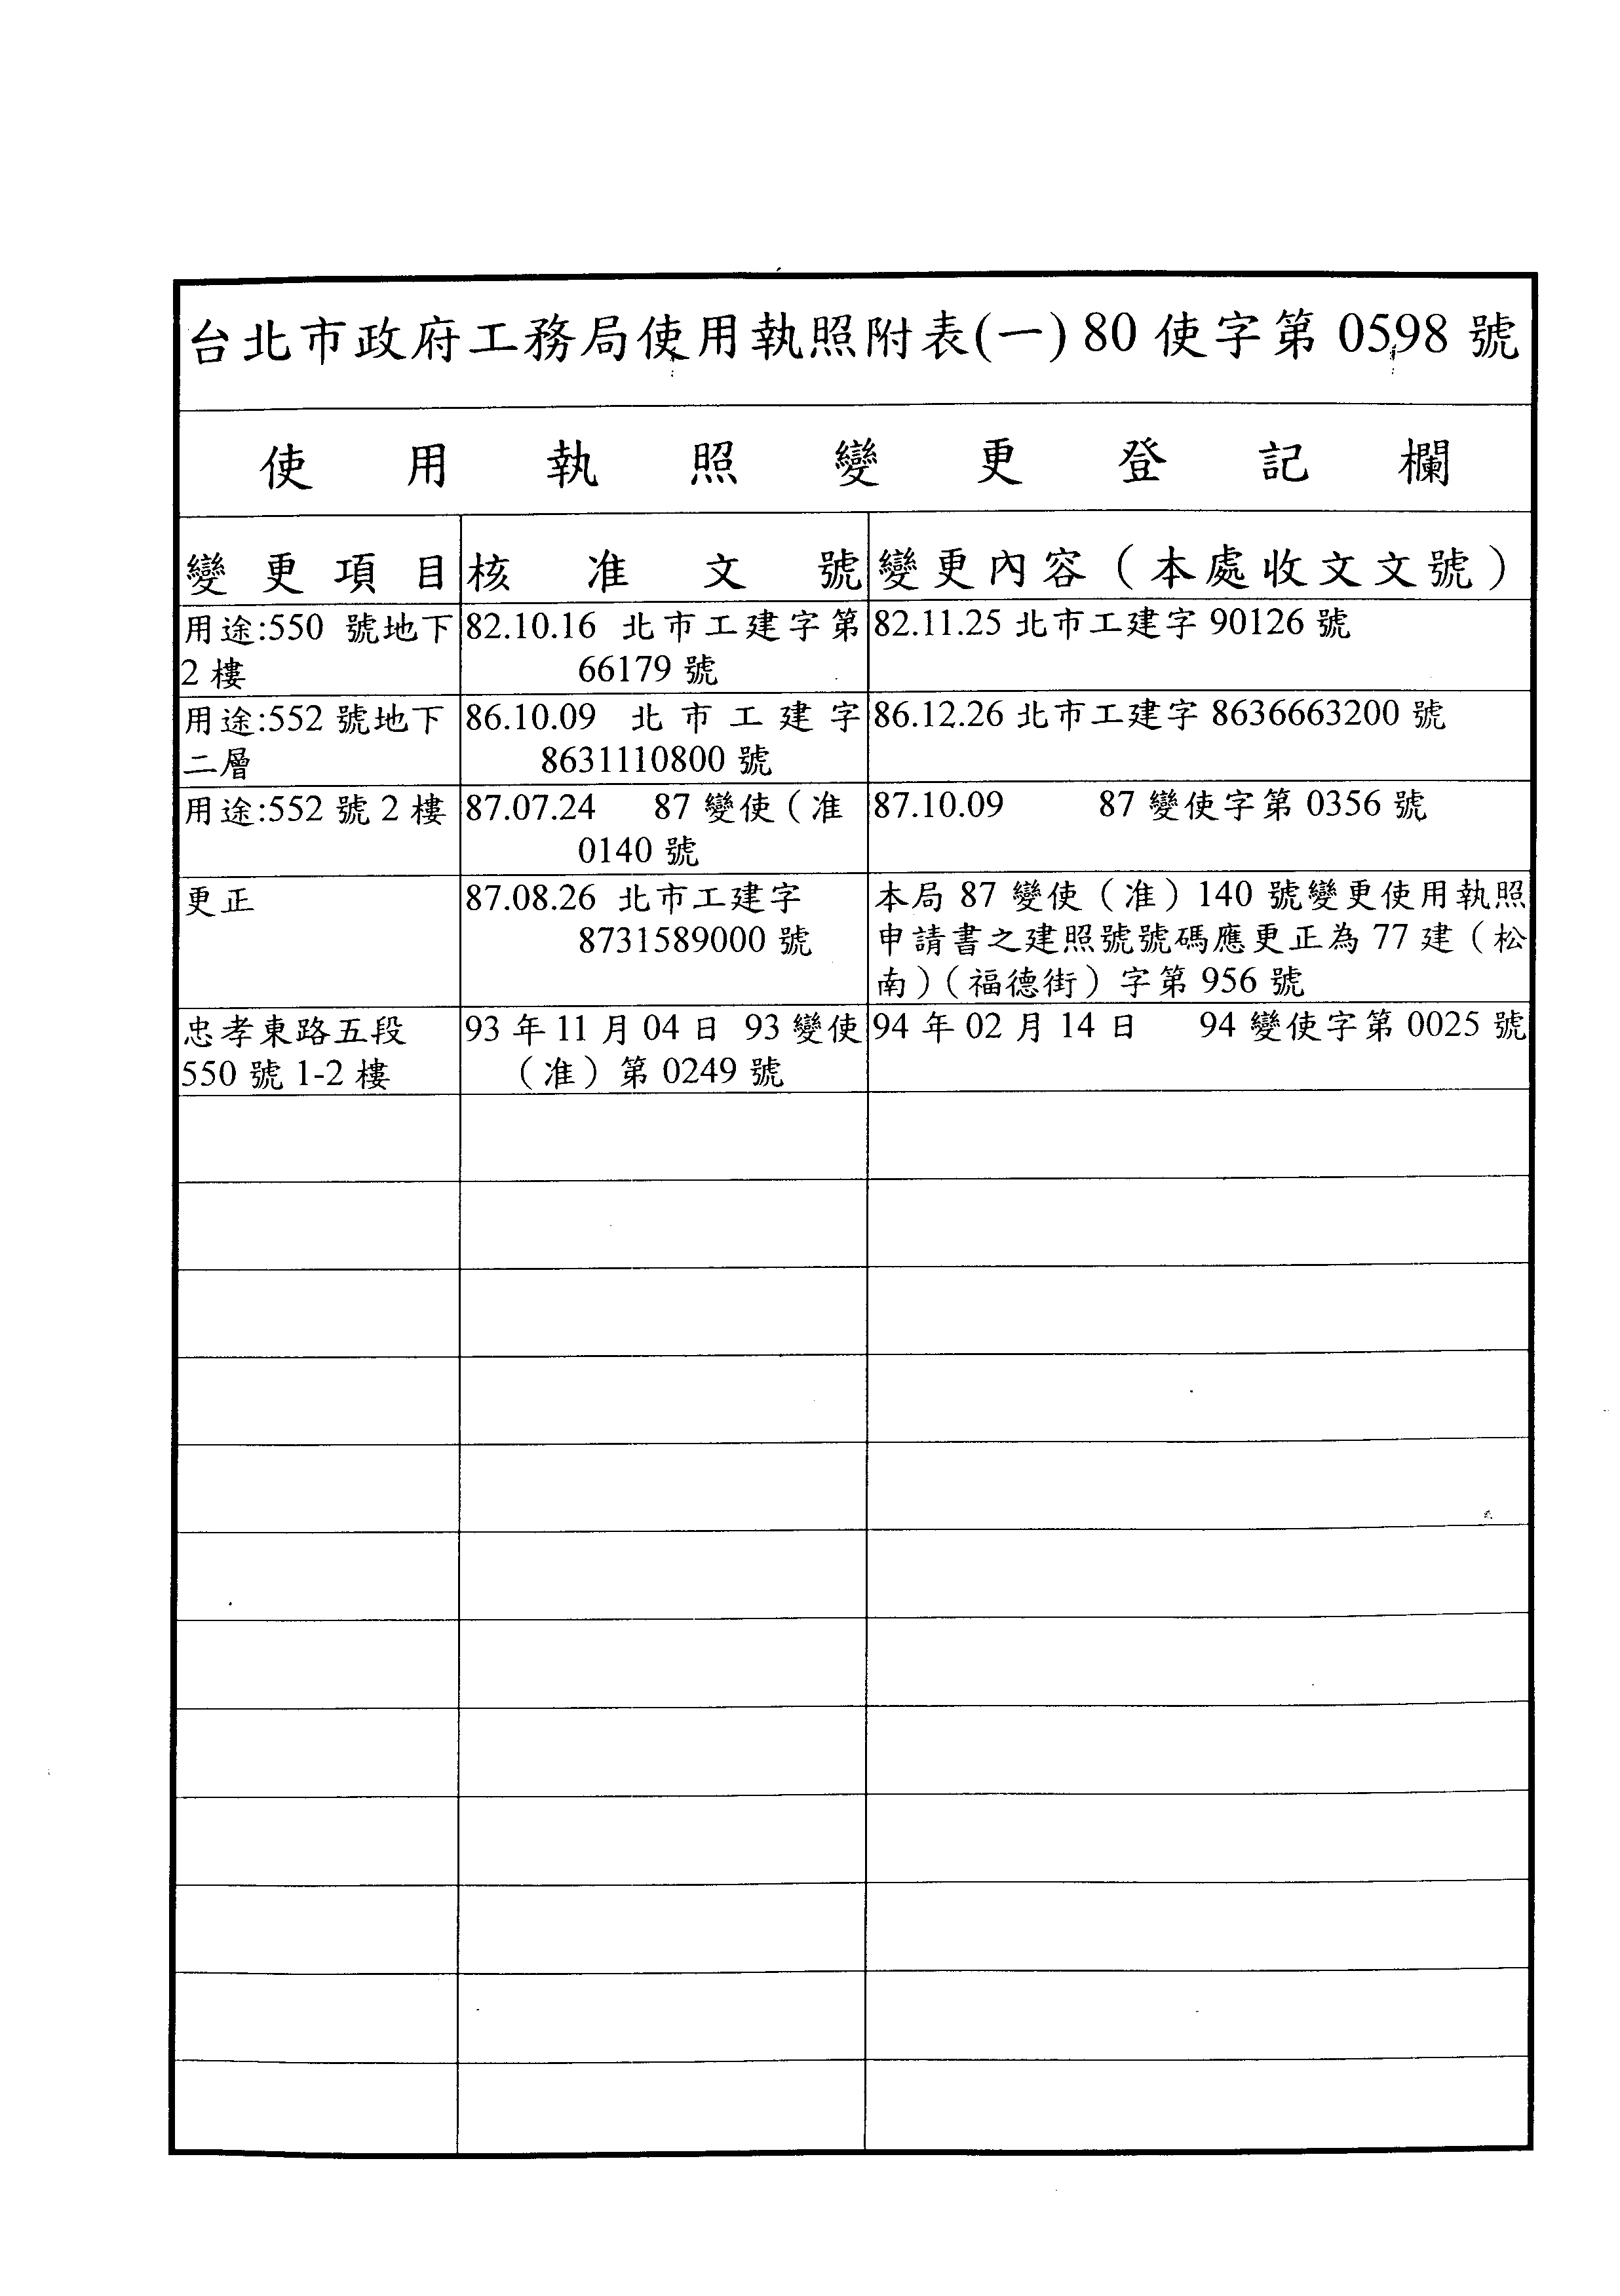 台北市政府工務局使用執照附表(一) 80 使字第 0598 號
使用執照變更登記欄
變更項目 核准文號 變更內容（本處收文文號）
用途:550 號地下 82.10.16 北市工建字第 82.11.25 北市工建字 90126 號
2 樓 66179 號
用途:552 號地下 86.10.09 北市工建字 86.12.26 北市工建字 8636663200 號
二層 8631110800 號
用途:552 號 2 樓 87.07.24 87 變使（准 87.10.09 87 變使字第 0356 號
0140 號
更正 87.08.26 北市工建字 本局 87 變使（准）140 號變更使用執照
8731589000 號 申請書之建照號號碼應更正為 77 建（松
南）（福德街）字第 956 號
忠孝東路五段 93 年 11 月 04 日 93 變使 94 年 02 月 14 日 94 變使字第 0025 號
550 號 1-2 樓 （准）第 0249 號